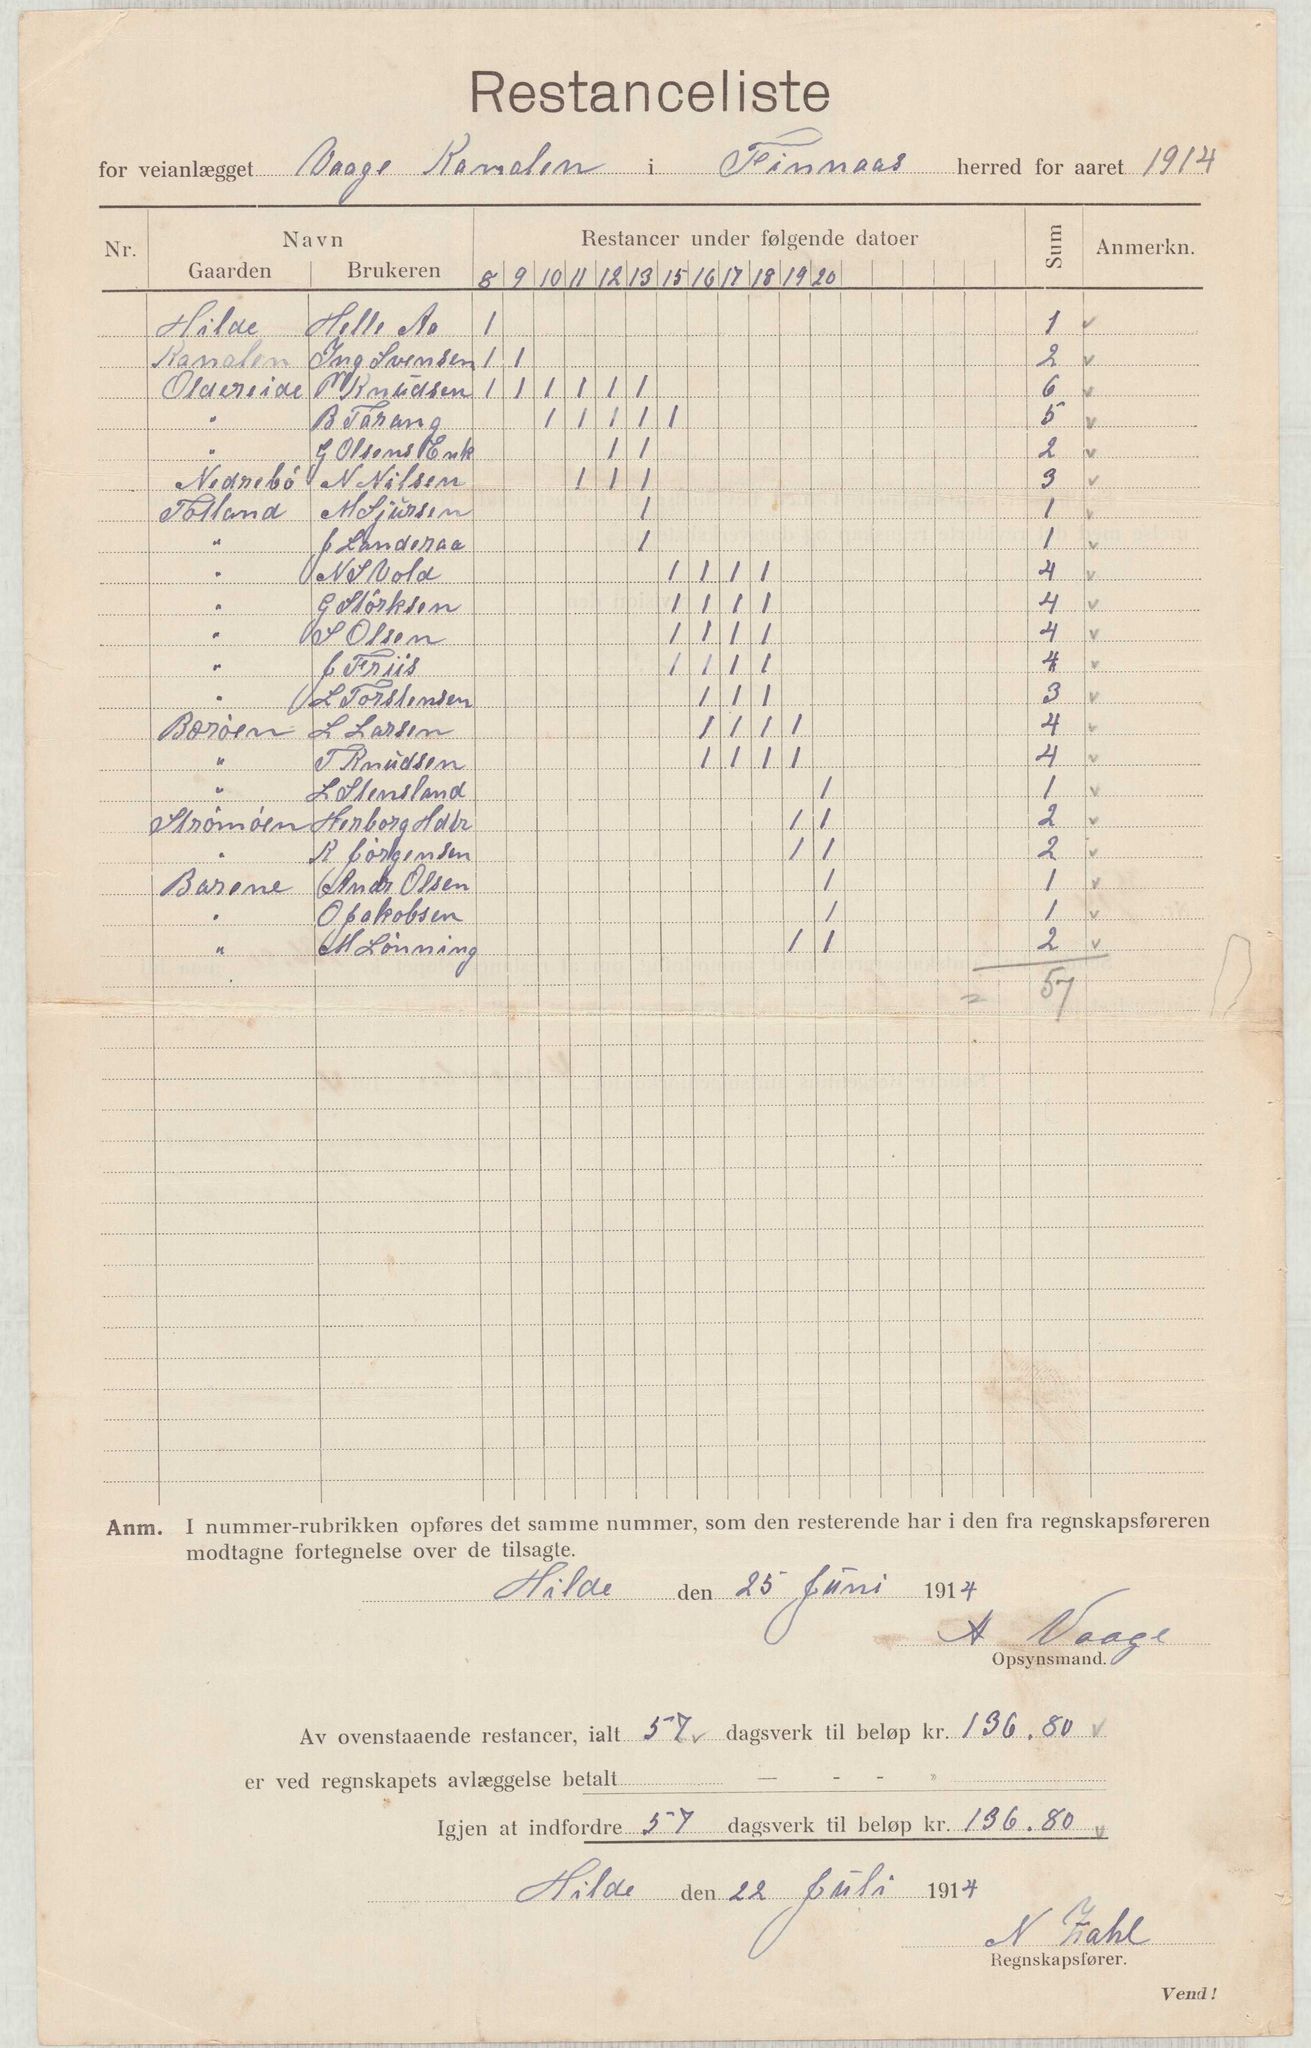 Restanceliste
for veianlægget Vaage Kanalen i Finnaas herred for aaret 1914
Nr. Navn Restancer under følgende datoer Sum Anmerkn.
Gaarden Brukeren 8 9 10 11 12 13 15 16 17 18 19 20
Hilde Helle Ao 1 1 v
Kanalen Ing Svensen 1 1 2 v
Oldereide M Knudsen 1 1 1 1 1 1 6 v
" B Tarang 1 1 1 1 1 5 v
" G Olsens Enk 1 1 2 v
Nedrebö N Nilsen 1 1 1 3 v
Tolland M Sjursen 1 1 v
" J Landeraa 1 1 v
" N S Vold 1 1 1 1 4 v
" G Störksen 1 1 1 1 4 v
" S Olsen 1 1 1 1 4 v
" J Friis 1 1 1 1 4 v
" L Torstensen 1 1 1 3 v
Boröen L Larsen 1 1 1 1 4 v
" T Knudsen 1 1 1 1 4 v
" L Stensland 1 1 v
Strömöen Herborg Hdtr 1 1 2 v
" R Jörgensen 1 1 2 v
Barene Andr Olsen 1 1 v
" O Jakobsen 1 1 v
" M Lönning 1 1 2 v
= 57
Anm. I nummer-rubrikken opføres det samme nummer, som den resterende har i den fra regnskapsføreren
modtagne fortegnelse over de tilsagte.
Hilde den 25 Juni 1914
A Vaage
Opsynsmand.
Av ovenstaaende restancer, ialt 57 v dagsverk til beløp kr. 136.80 v
er ved regnskapets avlæggelse betalt — - - "
Igjen at indfordre 57 dagsverk til beløp kr. 136.80 v
Hilde den 22 Juli 1914
N Zahl
Regnskapsfører.
Vend!